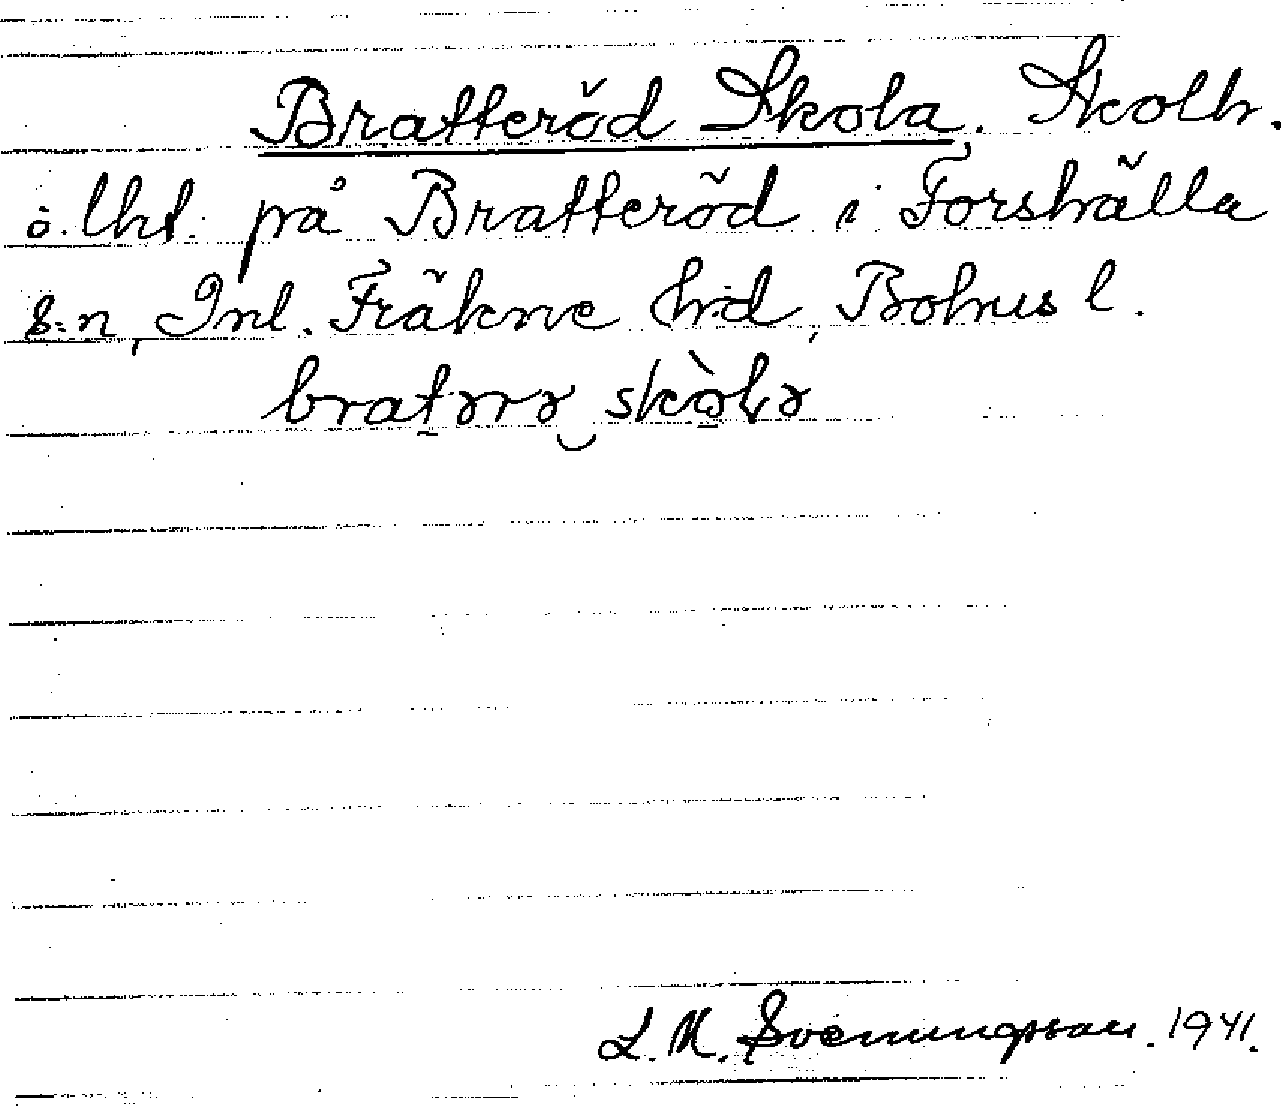 Bratteröd Skola, Skolh.
o. lht. på Bratteröd i Forshälla
s:n, Inl. Fräkne hd, Bohus l.
L. M. Svenungsson. 1941.